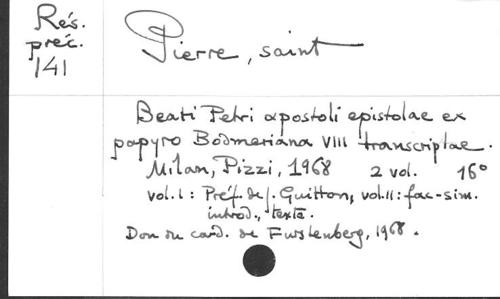 Rés.
préc.
141
Pierre, saint
Beati Petri apostoli epistolae ex
papyro Bodmeriana VIII transcriptae.
Milan, Pizzi, 1968 2 vol. 16°
vol. I : Préf. de J. Guitton, vol. II : fac-sim.
introd., texte.
Don du card. de Furstenberg, 1968.